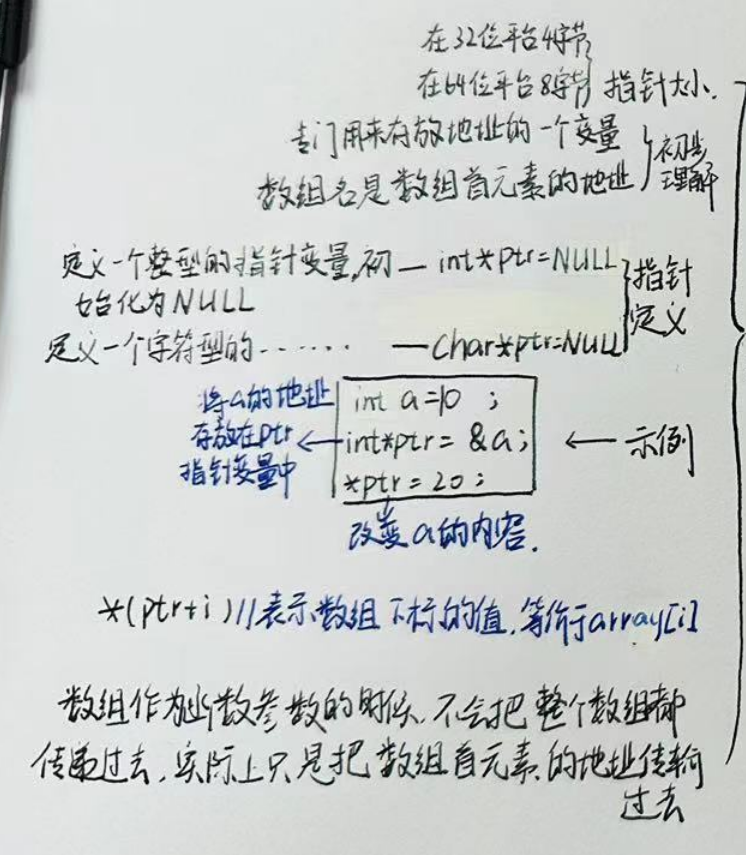 在32位平台4字节
在64位平台8字节 指针大小.
专门用来存放地址的一个变量
数组名是数组首元素的地址
初步
理解
定义一个整型的指针变量,初 — int*ptr=NULL
始化为NULL
定义一个字符型的······· — char*ptr=NULL
指针
定义
将a的地址
存放在ptr
指针变量中
int a=10 ;
int*ptr= &a;
*ptr=20;
← 示例
改变a的内容.
*(ptr+i)//表示数组下标的值,等价于array[i]
数组作为函数参数的时候,不会把整个数组都
传递过去,实际上只是把数组首元素的地址传输
过去